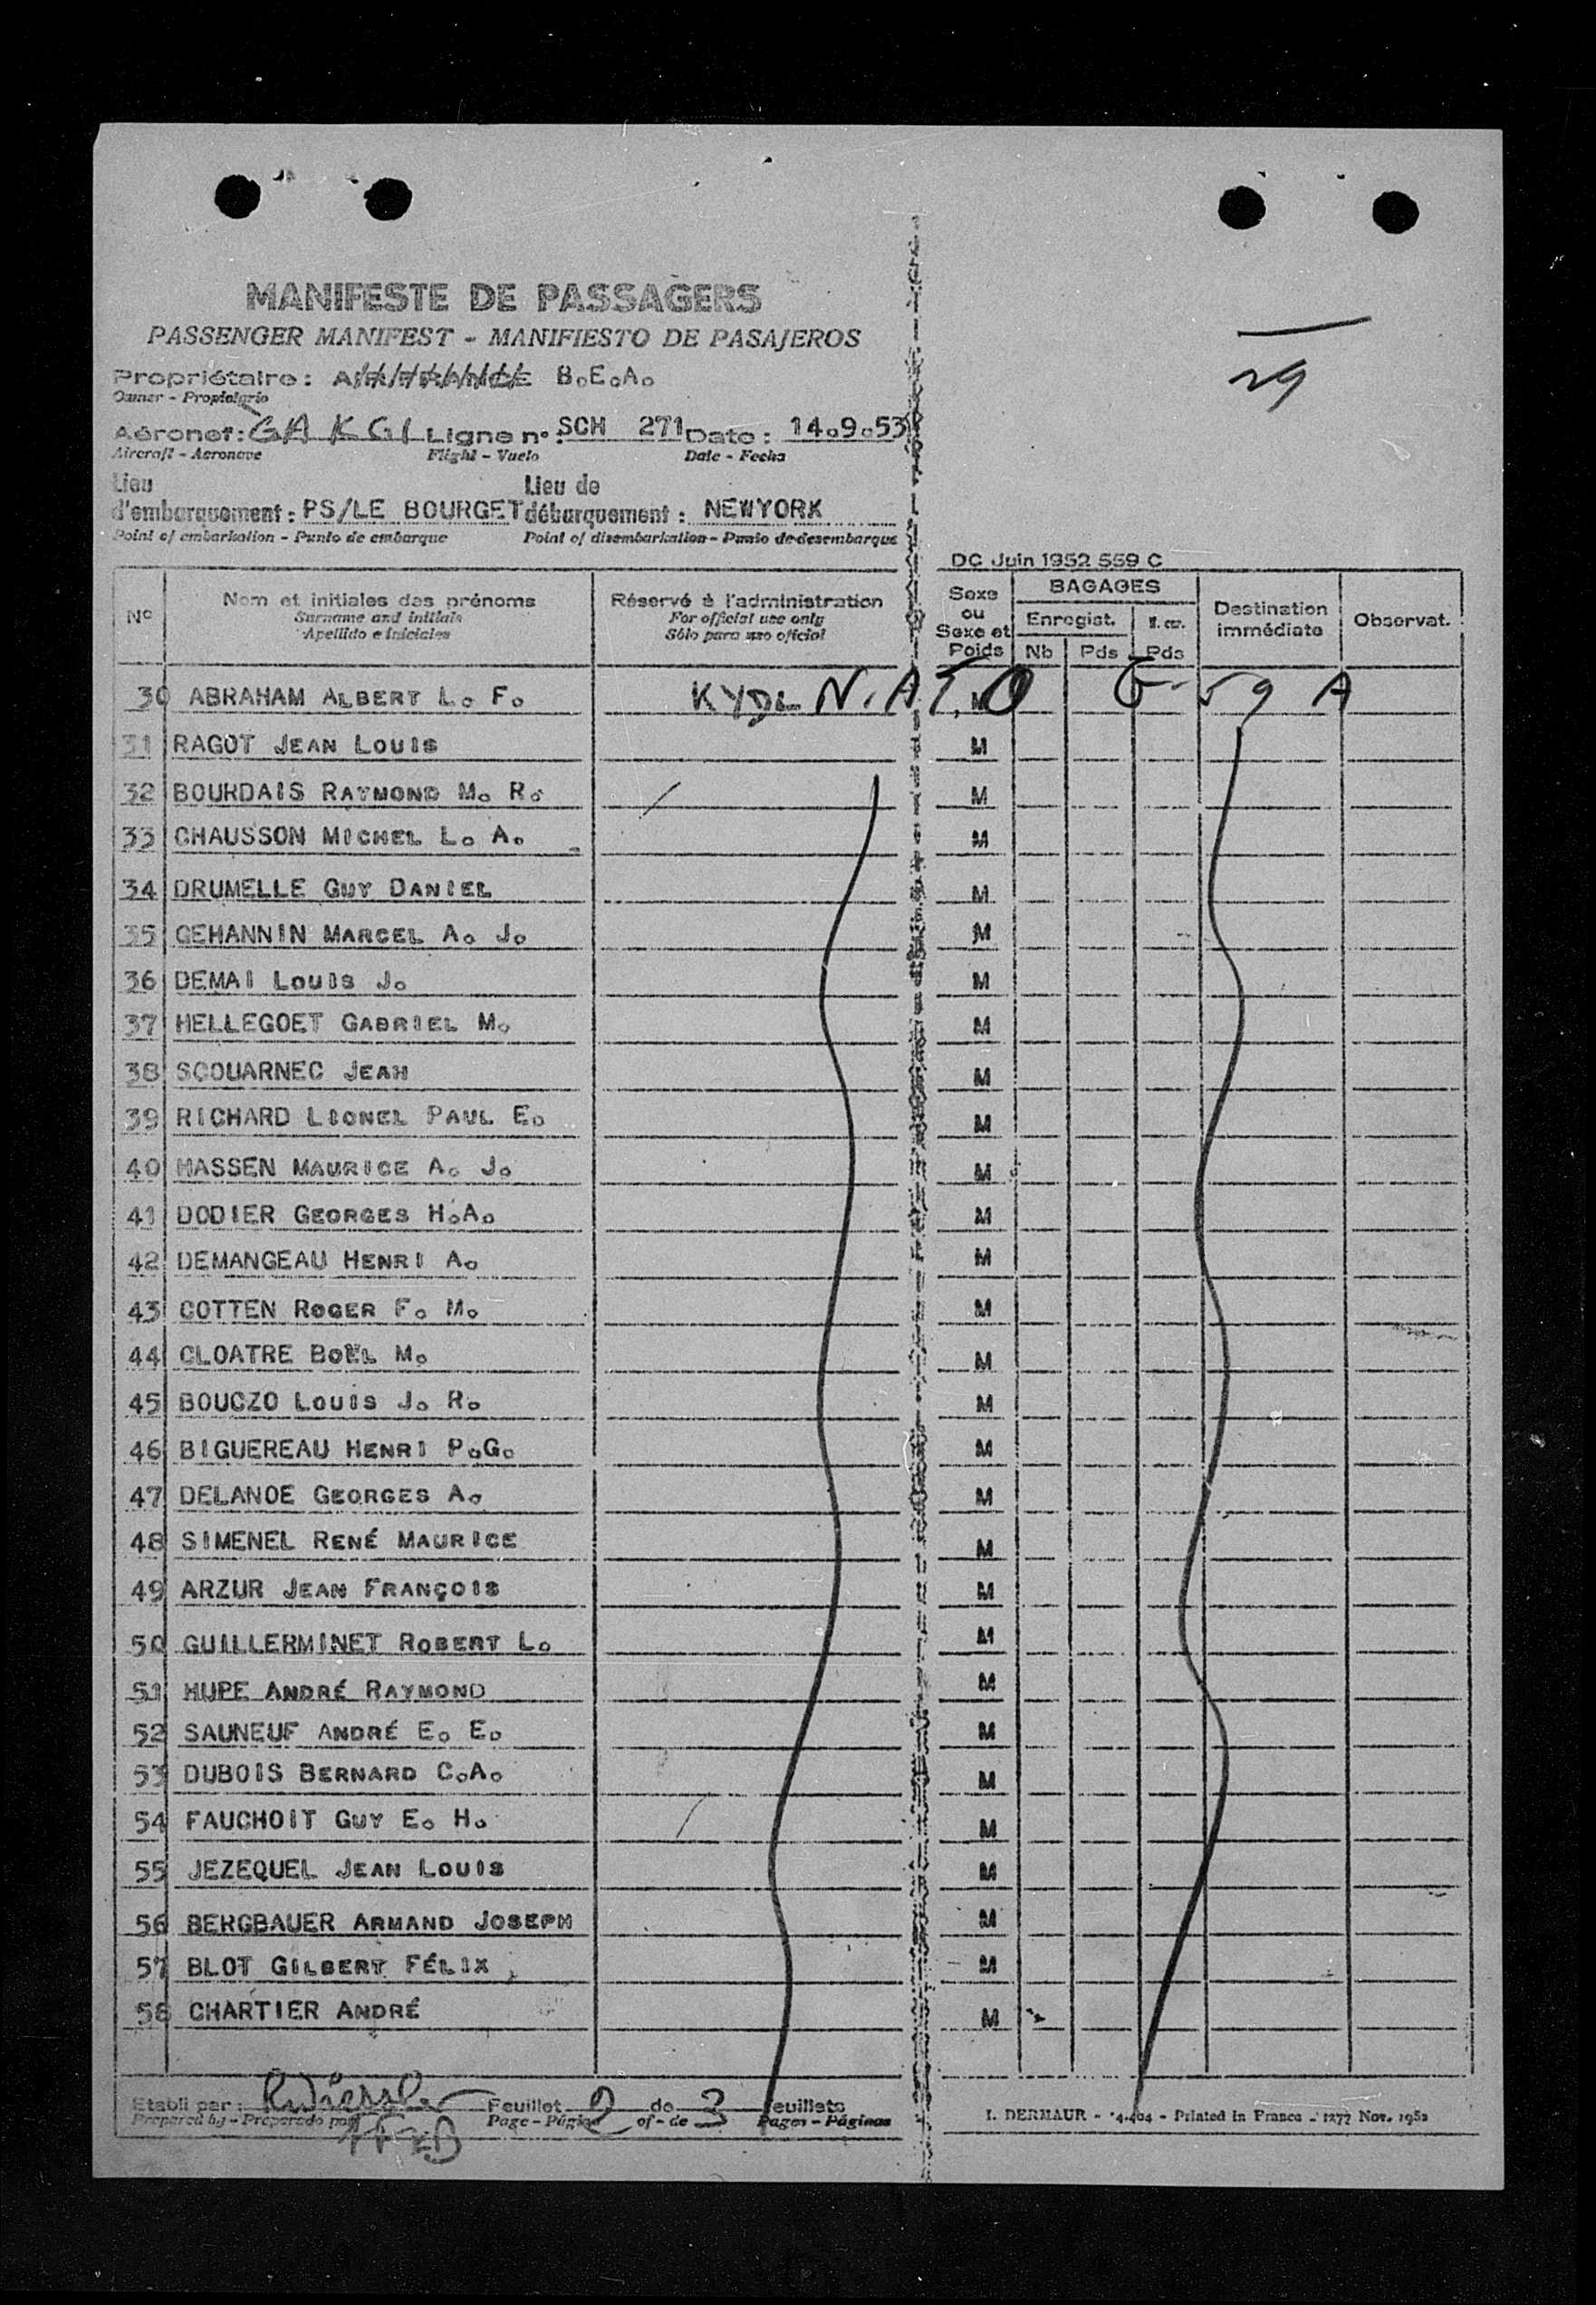 MANIFESTE DE PASSAGERS
PASSENGER MANIFEST - MANIFIESTO DE PASAJEROS
29
Propriétaire : AIR FRANCE B.E.A.
Owner - Propietario
Aéronef : GAKGI Ligne n° : SCH 271 Date : 14.9.53
Aircraft - Aeronave Flight - Vuelo Date - Fecha
Lieu Lieu de
d'embarquement : PS/LE BOURGET débarquement : NEWYORK
Point of embarkation - Punto de embarque Point of disembarkation - Punto de desembarque
DC Juin 1952 559 C
N° Nom et initiales des prénoms Réservé à l'administration Sexe ou Sexe et Poids BAGAGES Destination immédiate Observat.
Surname and initials For official use only Enregist.
Apellido e iniciales Sólo para uso oficial Nb Pds Pds
30 ABRAHAM ALBERT L. F. N.A.T.O M
31 RAGOT JEAN LOUIS M
32 BOURDAIS RAYMOND M. R. M
33 CHAUSSON MICHEL L. A. M
34 DRUMELLE GUY DANIEL M
35 GEHANNIN MARCEL A. J. M
36 DEMAI LOUIS J. M
37 HELLEGOET GABRIEL M. M
38 SCOUARNEC JEAN M
39 RICHARD LIONEL PAUL E. M
40 MASSEN MAURICE A. J. M
41 DODIER GEORGES H.A. M
42 DEMANGEAU HENRI A. M
43 COTTEN ROGER F. M. M
44 CLOATRE BOËL M. M
45 BOUCZO LOUIS J. R. M
46 BIGUEREAU HENRI P.G. M
47 DELANOE GEORGES A. M
48 SIMENEL RENÉ MAURICE M
49 ARZUR JEAN FRANÇOIS M
50 GUILLERMINET ROBERT L. M
51 HUPE ANDRÉ RAYMOND M
52 SAUNEUF ANDRÉ E. E. M
53 DUBOIS BERNARD C.A. M
54 FAUCHOIT GUY E. H. M
55 JEZEQUEL JEAN LOUIS M
56 BERGBAUER ARMAND JOSEPH M
57 BLOT GILBERT FÉLIX M
58 CHARTIER ANDRÉ M
Etabli par : Feuillet 2 de 3 feuillets
Prepared by - Preparado por Page - Página of - de Pages - Páginas
I. DERMAUR - 4.404 - Printed in France - 1277 Nov. 1952